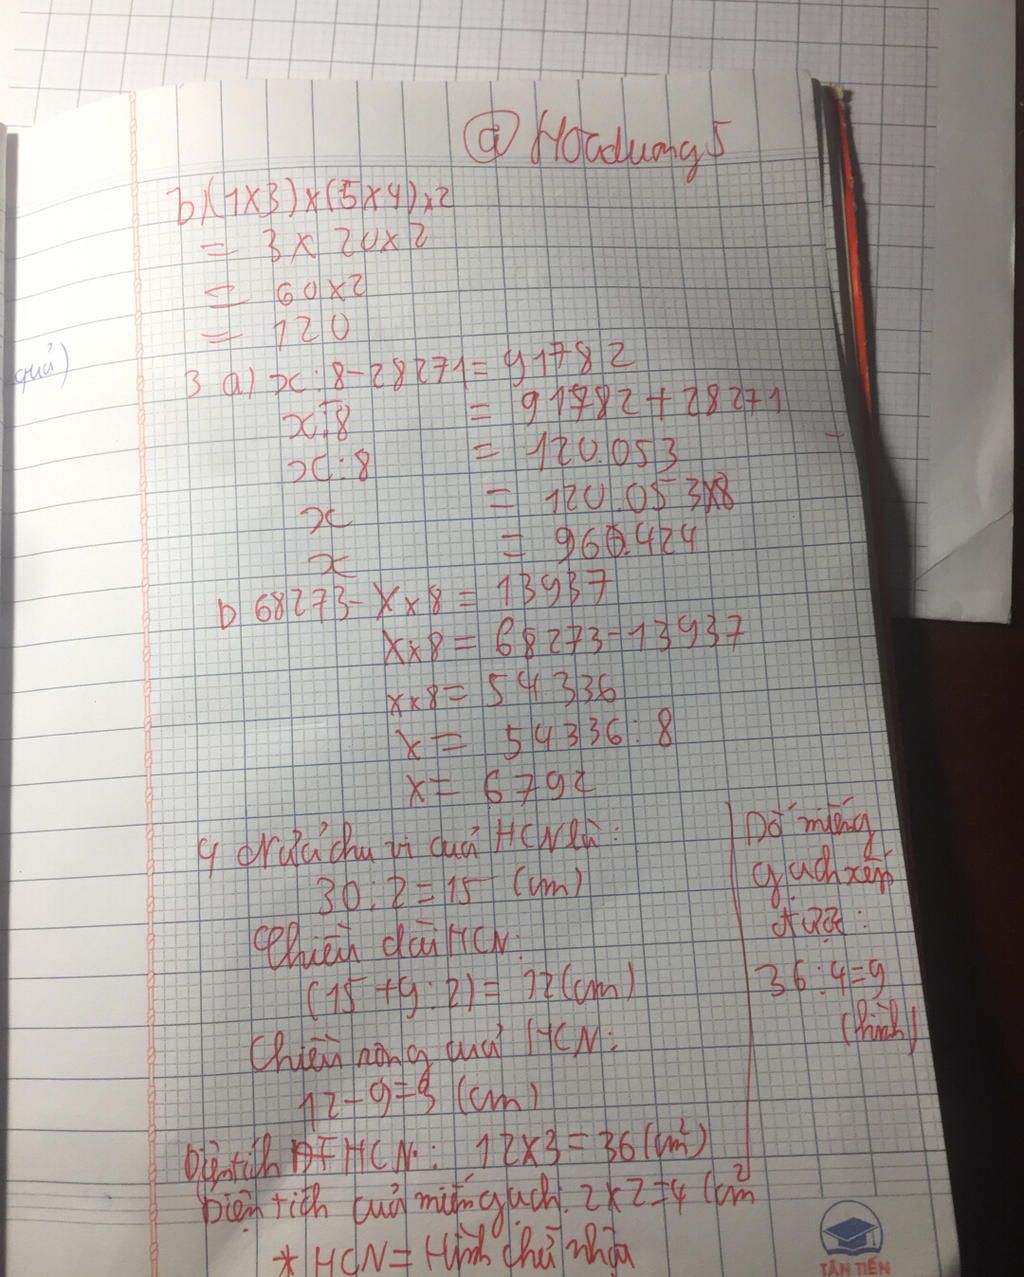 @Hoaduong5
b) (1x3)x(5x4)x2
= 3x20x2
= 60x2
= 120
quả)
3 a) x:8-28271=91782
x:8 = 91782+28271
x:8 = 120.053
x = 120.053x8
x = 960.424
b 68273-Xx8=13937
Xx8=68273-13937
xx8=54336
x= 54336:8
x= 6792
4 Nửa chu vi của HCN là:
30:2=15 (cm)
Chiều dài HCN:
(15+9:2)= 12(cm)
Chiều rộng của HCN:
12-9=3 (cm)
Diện tích HCN: 12x3=36(cm²)
Diện tích của miếng gạch: 2x2=4 (cm²
* HCN= Hình chữ nhật
Số miếng
gạch xếp
được:
36:4=9
(hình)
TÂN TIẾN